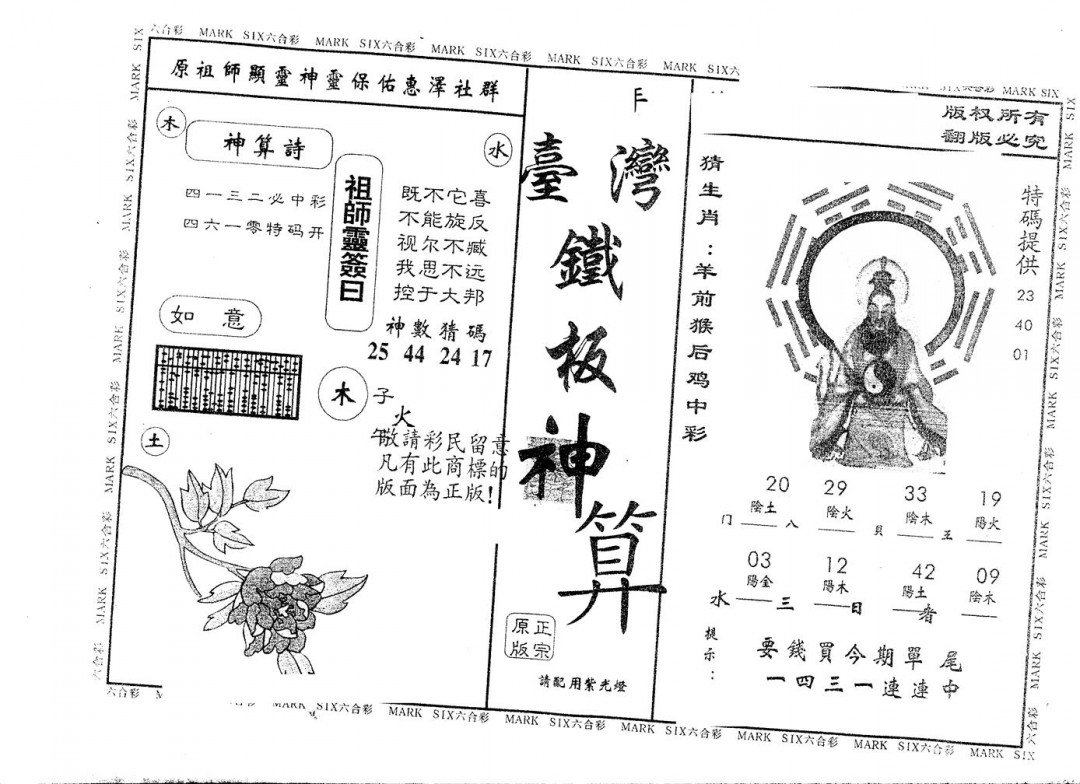 六合彩 MARK SIX六合彩 MARK SIX六合彩 MARK SIX六合彩 MARK SIX六合彩 MARK SIX六
原祖師顯靈神靈保佑惠澤社群
木
神算詩
水
四一三二必中彩
四六一零特码开
祖師靈簽曰
既不它喜
不能旋反
视尔不臧
我思不远
控于大邦
神數猜碼
25 44 24 17
如意
木
子
火
午
敬請彩民留意
凡有此商標的
版面為正版!
土
臺灣
鐵
板
神
算
原正
版宗
請配用紫光燈
MARK SIX
版权所有
翻版必究
猜生肖:羊前猴后鸡中彩
特碼提供
23
40
01
20 29 33 19
陰土 陰火 陰木 陽火
门 八 贝 王
03 12 42 09
陽金 陽木 陽土 陰木
水 三 日 者
提示:
要錢買今期單尾
一四三一連連中
六合彩
MARK SIX六合彩 MARK SIX六合彩 MARK SIX六合彩 MARK SIX六合彩 MARK SIX六合彩 MARK SIX六合彩 MARK SIX